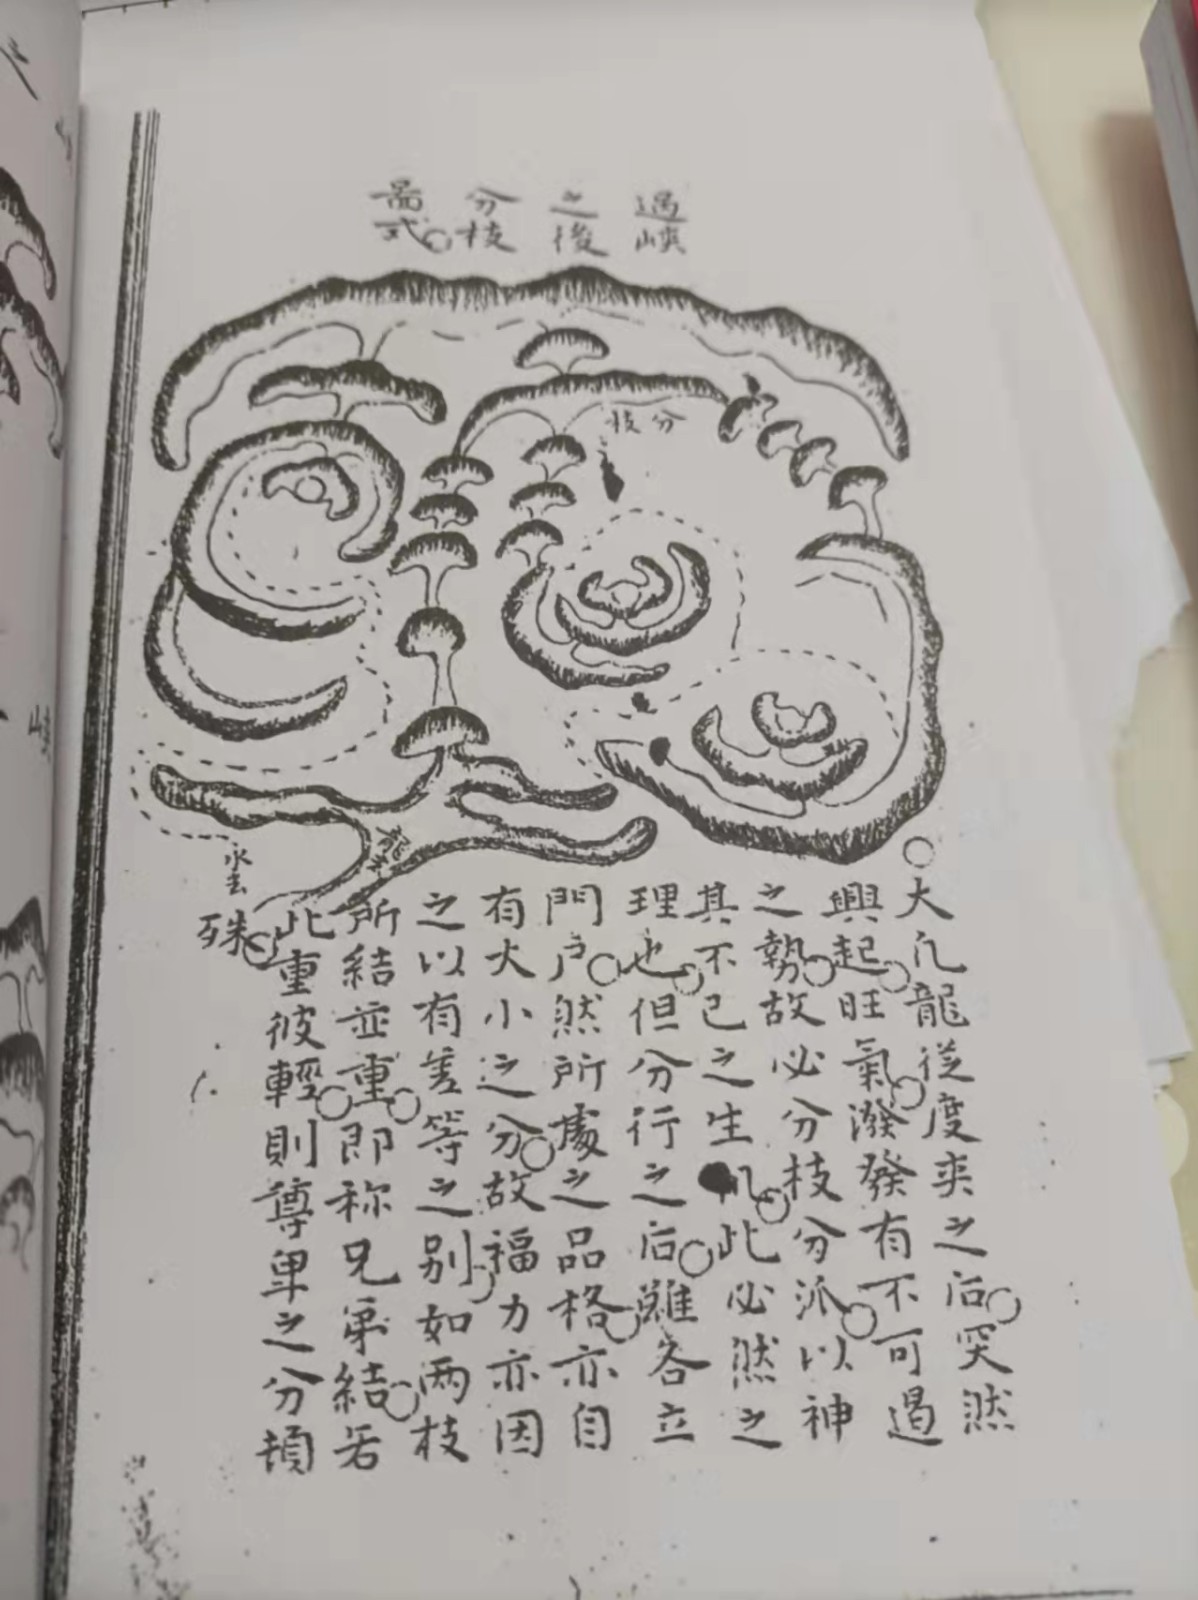 過峽
之後
分枝
啚式
分枝
水去
大凢龍從度夾之后突然
興起旺氣潑發有不可遏
之勢故必分枝分派以神
其不已之生机此必然之
理也但分行之后雖各立
門户然所處之品格亦自
有大小之分故福力亦因
之以有差等之别如两枝
所結並重即称兄弟結若
此重彼輕則尊卑之分頓
殊